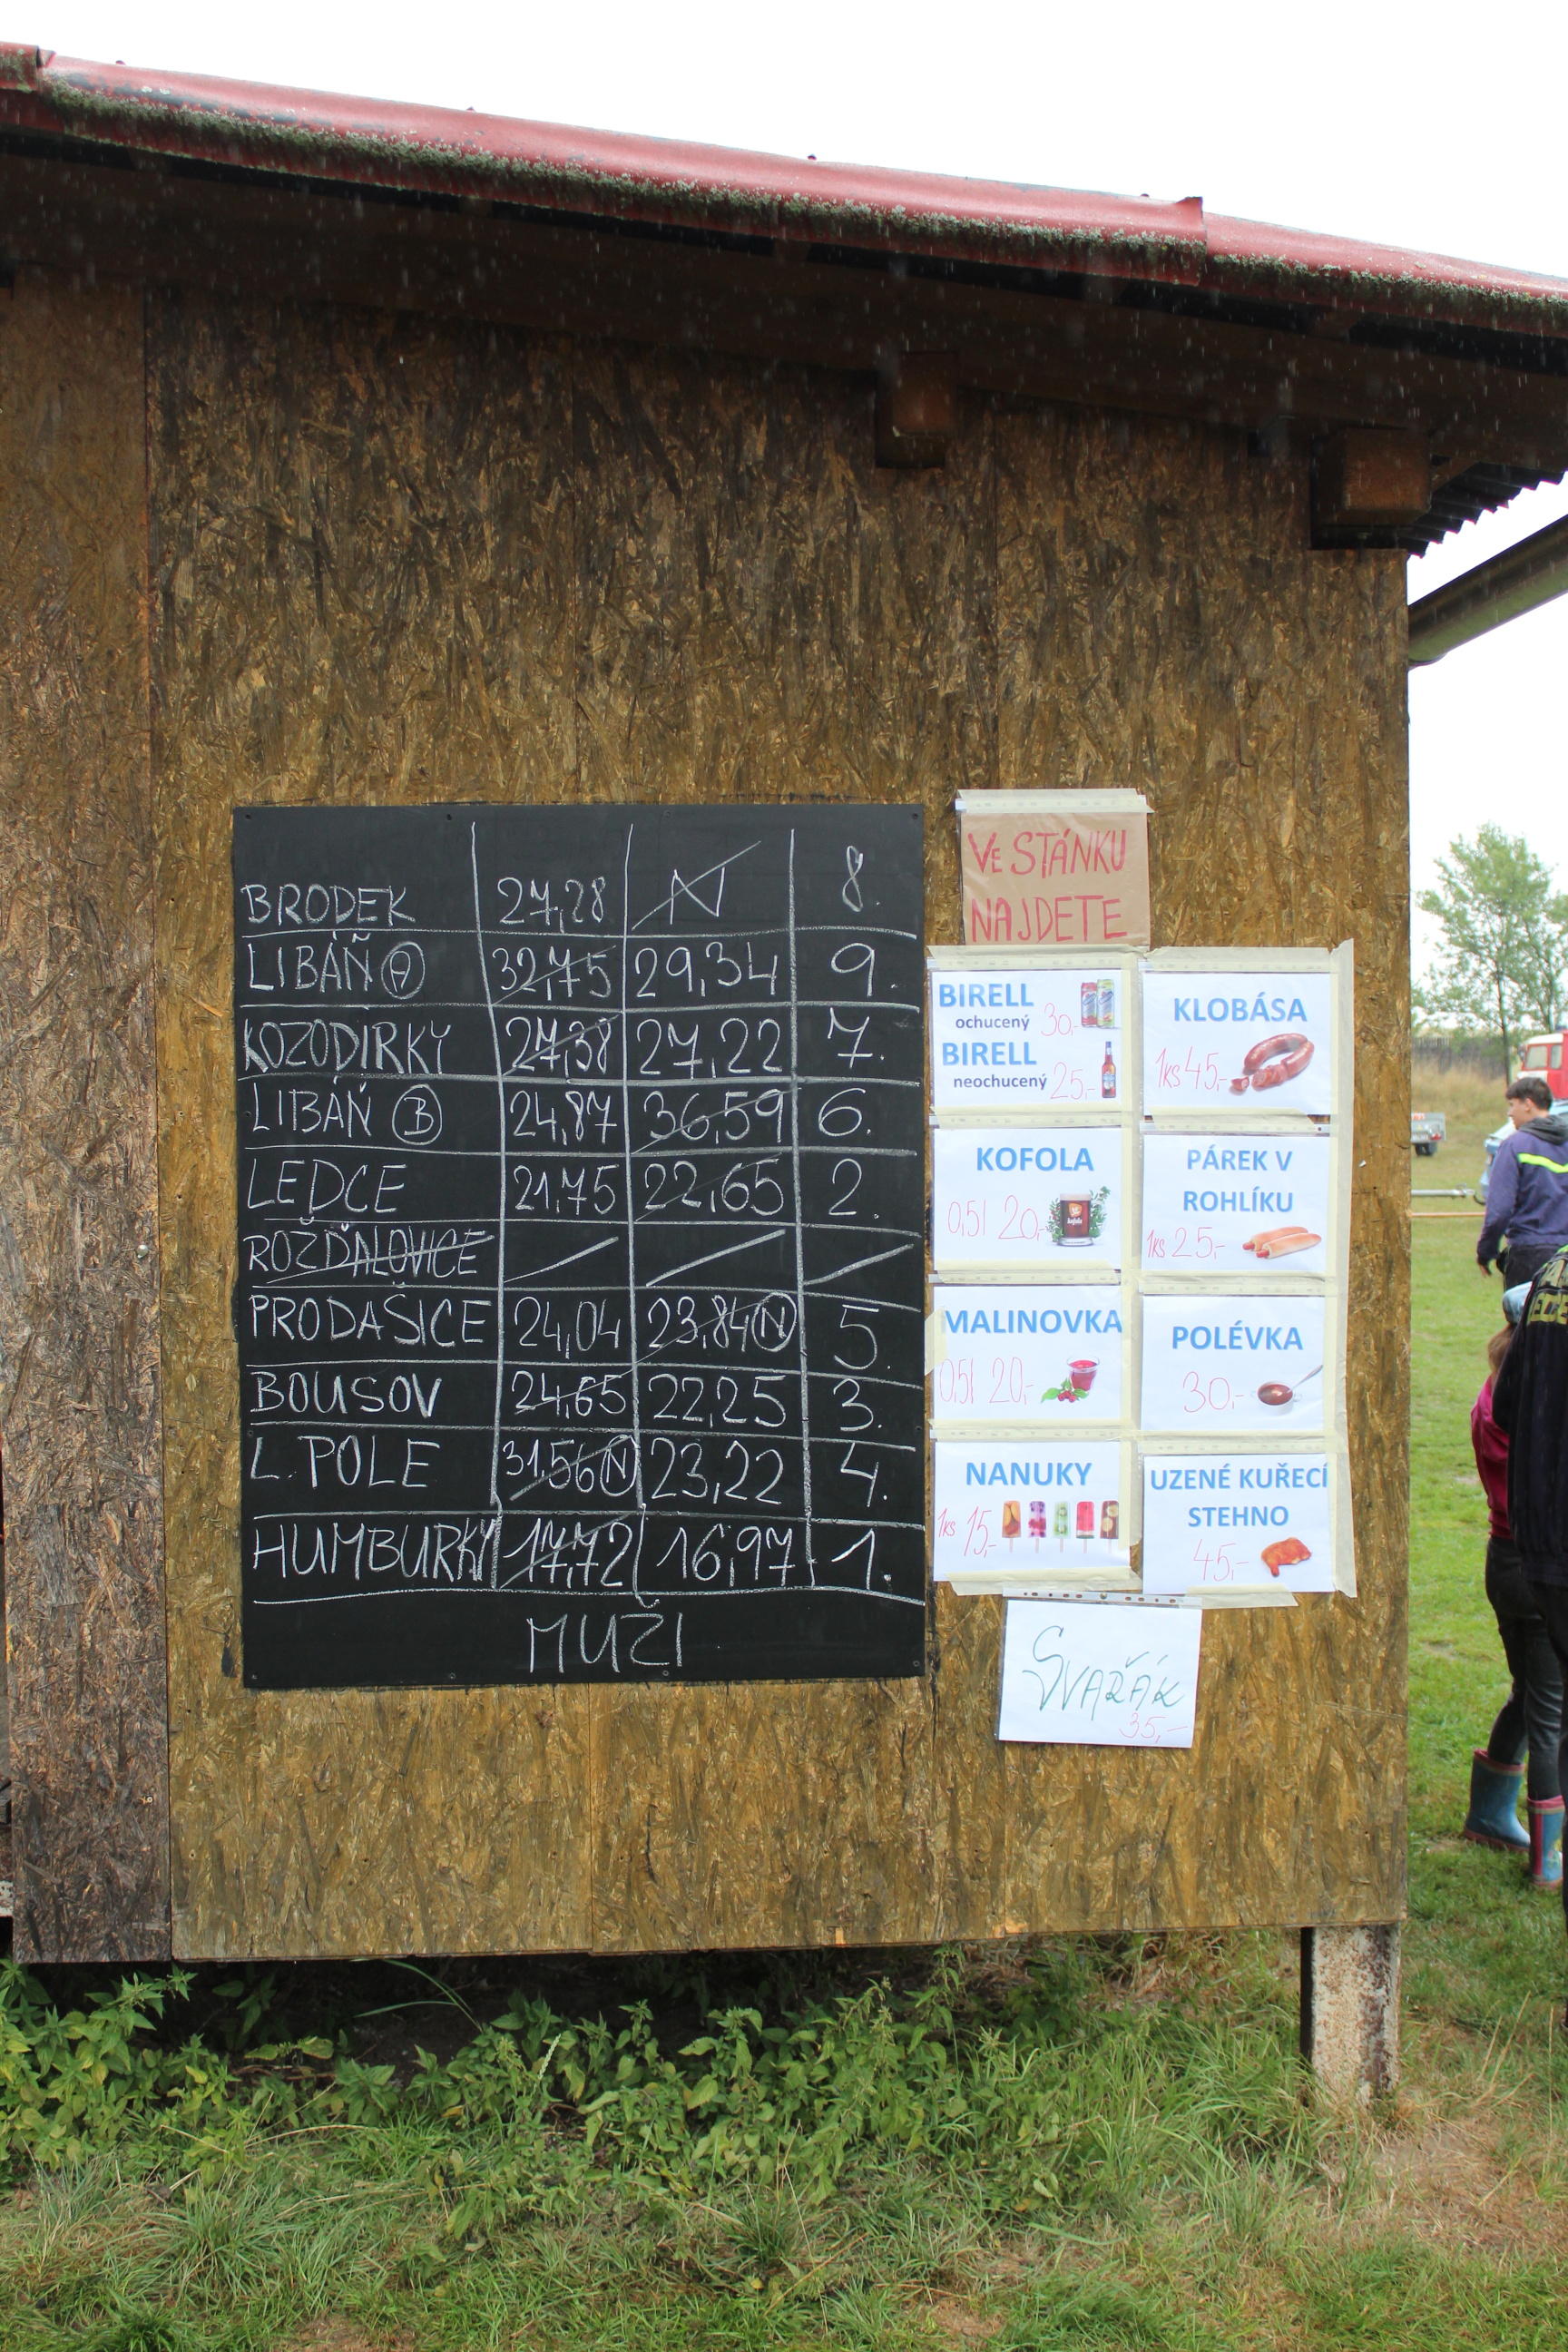 BRODEK 27,28 N 8.
LIBÁŇ A 32,75 29,34 9.
KOZODÍRKY 27,38 27,22 7.
LIBÁŇ B 24,87 36,59 6.
LEDCE 21,75 22,65 2.
ROŽĎALOVICE
PRODAŠICE 24,04 23,84 N 5.
BOUSOV 24,65 22,25 3.
L. POLE 31,56 N 23,22 4.
HUMBURKY 17,72 16,97 1.
MUŽI
VE STÁNKU
NAJDETE
BIRELL
ochucený 30,-
BIRELL
neochucený 25,-
KOFOLA
0,5l 20,-
MALINOVKA
0,5l 20,-
NANUKY
1ks 15,-
KLOBÁSA
1ks 45,-
PÁREK V
ROHLÍKU
1ks 25,-
POLÉVKA
30,-
UZENÉ KUŘECÍ
STEHNO
45,-
SVAŘÁK
35,-